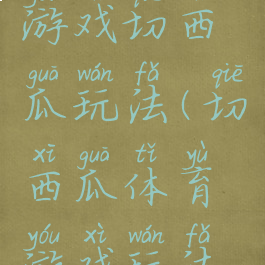 游戏切西
guā wán fǎ qiē
瓜玩法(切
xī guā tǐ yù
西瓜体育
yóu xì wán fǎ
游戏玩法